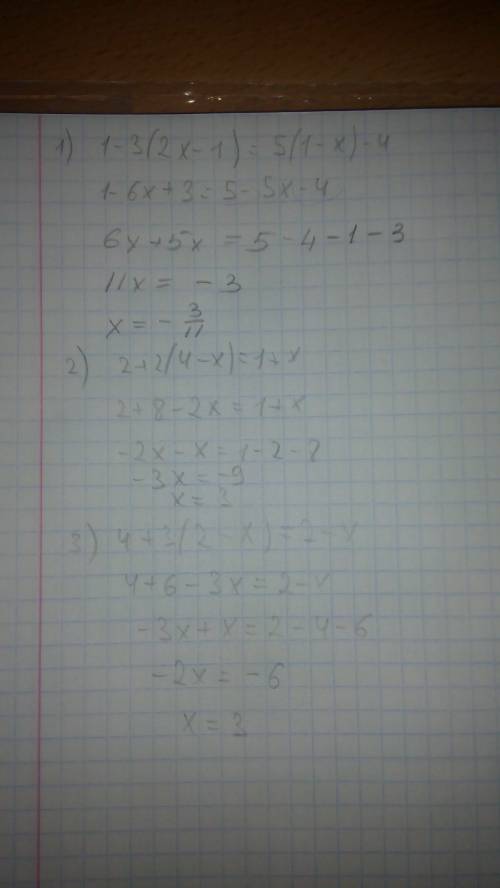 1) 1-3(2x-1)=5(1-x)-4
1-6x+3=5-5x-4
6x+5x = 5-4-1-3
11x = -3
x = -3/11
2) 2+2(4-x)=1+x
2+8-2x=1+x
-2x-x=1-2-8
-3x=-9
x=3
3) 4+3(2-x)=2-x
4+6-3x=2-x
-3x+x=2-4-6
-2x=-6
x=3